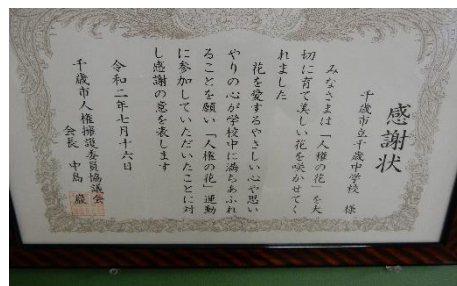 感謝状
千歳市立千歳中学校　様
みなさまは「人権の花」を大
切に育て美しい花を咲かせてく
れました
花を愛するやさしい心や思い
やりの心が学校中に満ちあふれ
ることを願い「人権の花」運動
に参加していただいたことに対
し感謝の意を表します
令和二年七月十六日
千歳市人権擁護委員協議会
会長　中島　巌